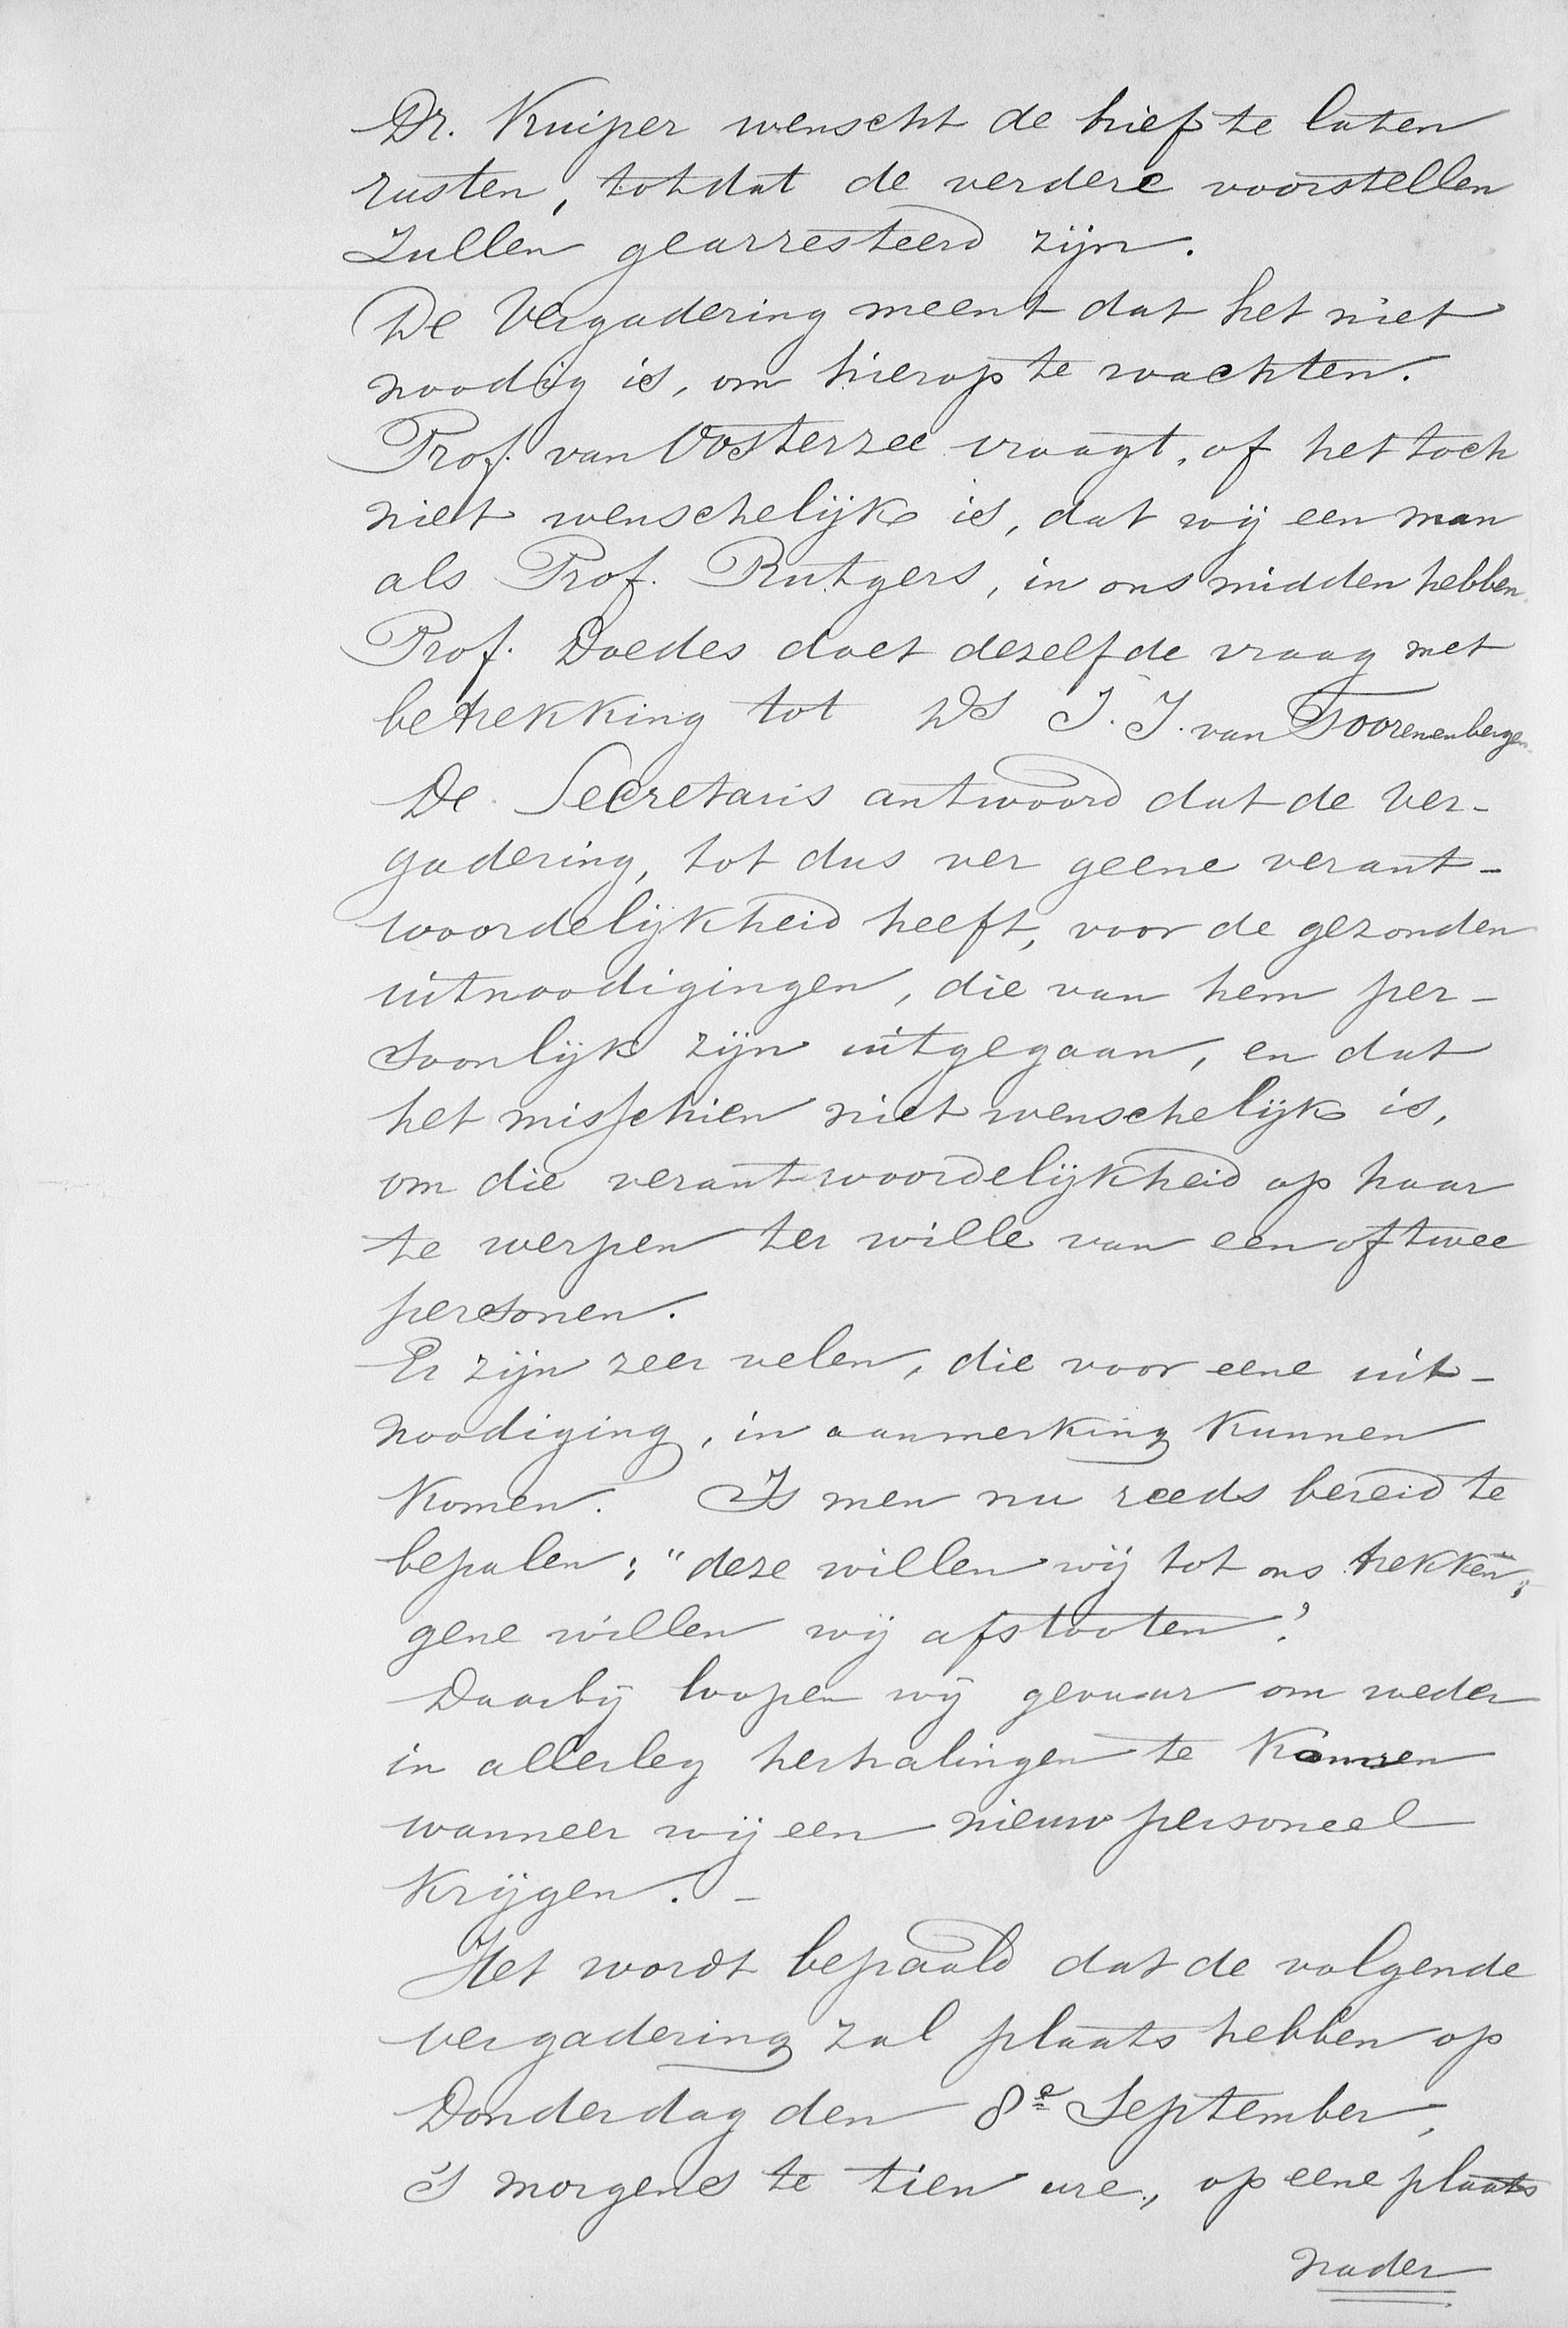 Dr. Kuiper wenscht de brief te laten
rusten, totdat de verdere voorstellen
Zullen gearresteerd zijn.
De Vergadering meent dat het niet
noodig is, om hierop te wachten.
Prof. van Oosterzee vraagt, of het toch
niet wenschelijk is, dat wij een man
als Prof. Rutgers, in ons midden hebben.
Prof. Doedes doet dezelfde vraag met
betrekking tot Ds J. J. van Toorenenbergen.
De Secretaris antwoord dat de Ver-
gadering, tot dus ver geene verant-
woordelijkheid heeft, voor de gezonden
uitnoodigingen, die van hem per-
soonlijk zijn uitgegaan, en dat
het misschien niet wenschelijk is,
om die verantwoordelijkheid op haar
te werpen ter wille van een of twee
personen.
Er zijn zeer velen, die voor eene uit-
noodiging, in aanmerking kunnen
komen. Is men nu reeds bereid te
bepalen: "deze willen wij tot ons trekken;
gene willen wij afstooten?
Daarbij loopen wij gevaar om weder
in allerley herhalingen te komen
wanneer wij een nieuw personeel
krijgen. -
Het wordt bepaald dat de volgende
vergadering zal plaats hebben op
Donderdag den 8e September,
's morgens te tien ure, op eene plaats
nader